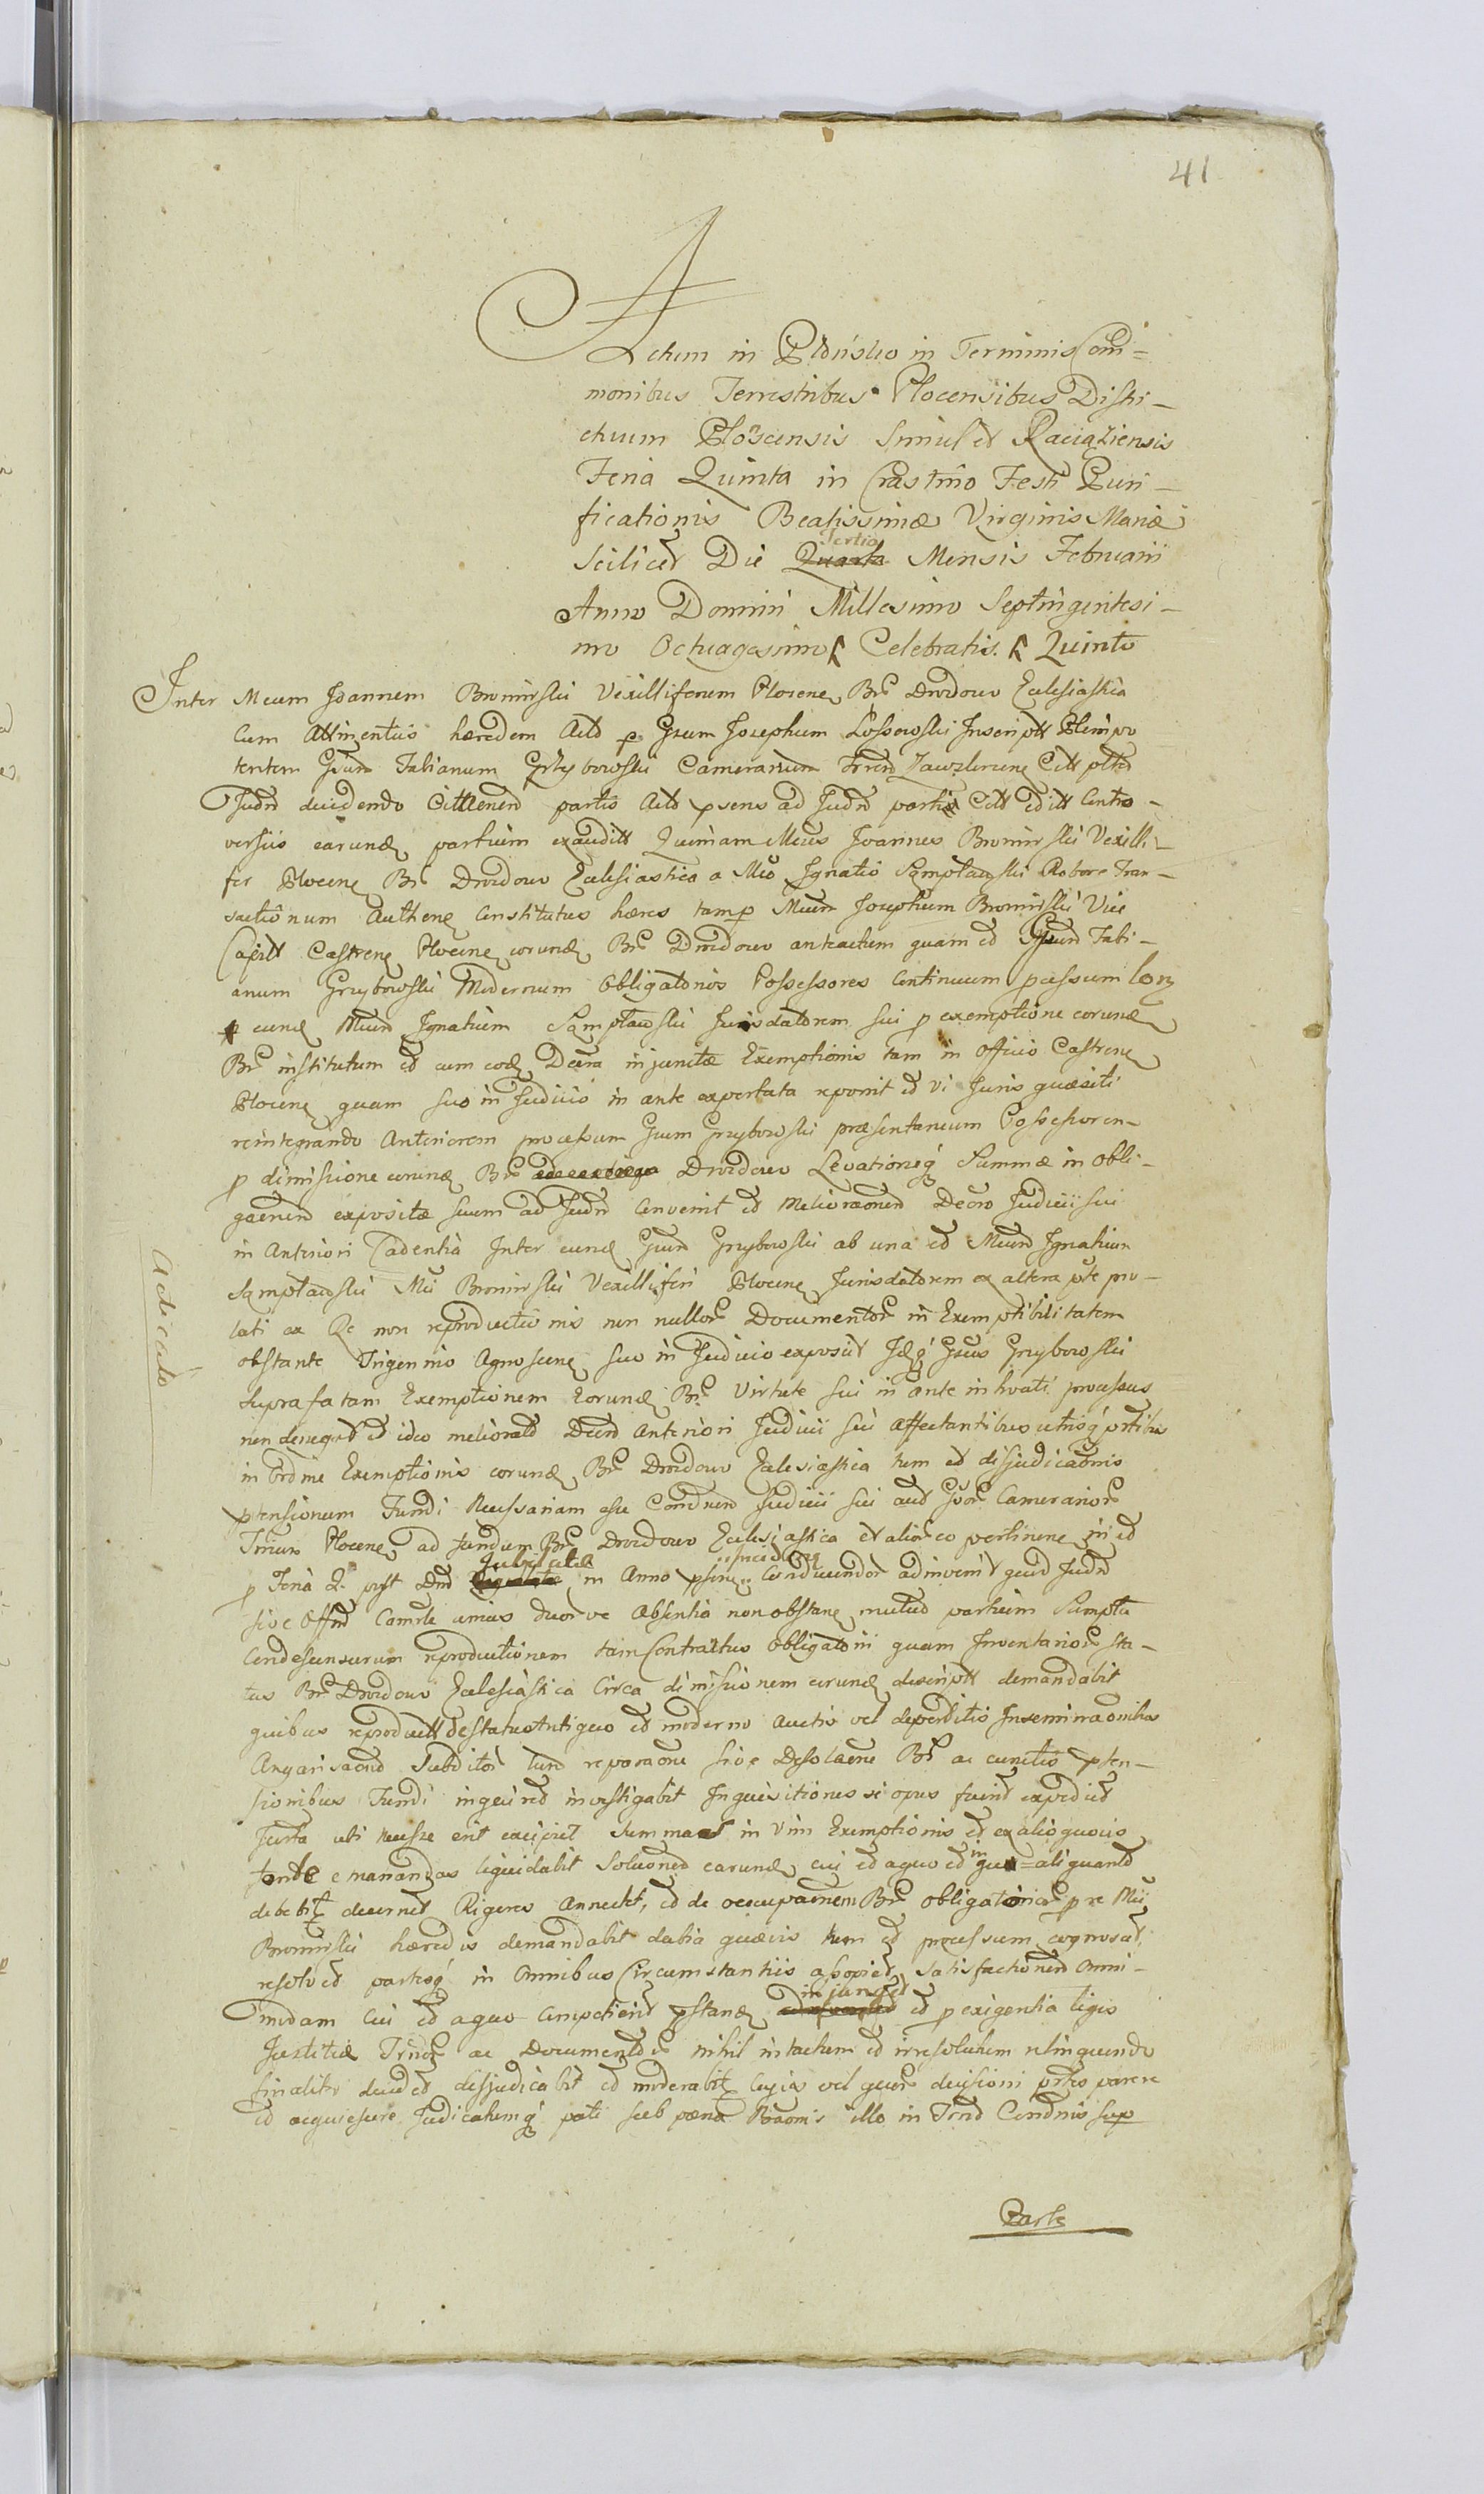 41
Actum in Płońsko in Terminis Com=
monibus Terrestribus Plocensibus Distri-
ctuum Płoscensis Simul et Raciąziensis
Feria Quinta in Crastino Festi Puri-
ficationis Beatissimæ Virginis Mariæ
Tertia
Scilicet Die Quarta Mensis Februarii
Anno Domini Millesimo Septingentesi-
mo Octuagesimo Celebratis. Quinto
Inter Mcum Joannem Bromirski Vexilliferum Plocens Br Drozdowo Eclesiastica
Cum Attinentiis hæredem Actd p Gsum Josephum Łossowski Inscriptt Plenipo
tentem Gsum Fabianum Grzybowski Camerarium Trrnd Zawzkrzene Citt ptted
Judd decidendo Cittaenend partis Actd psens ad Judd partis Citt editt Contro-
versiis earund partium exauditt Quoniam Mcus Joannes Bromirski Vexilli-
fer Plocens Br Drozdowo Eclesiastica a Mco Ignatio Sąmpławski Robore Tran-
sactionum Authene Constitutus hæres tam p Mcum Josephum Bromirski Vice
Capitt Castrens Plocens eorund Br Drozdowo anteactum quam et Gsum Fabi-
anum Grzybowski Modernum Obligatorios Possessores Continuum pcessum Con
eund Mcum Ignatium Sąmpławski Jurisdatorem sui p exemptione eorund
Br institutum et cum eod Dcra injunctæ Exemptionis tam in Officio Castrens
Plocens quam suo in Judicio in ante exportata reponit et vi Juris quæsiti
reintegrando Anteriorem processum Gsum Grzybowski præsentaneum Possessorem
p dimissione eorund Br Drozdowo Levationeq Summæ in Obli-
gaenem expositæ suum ad Judd Convenit et Melioraonem Decro Judicii sui
in Anteriori Cadentia Inter eund Gsum Grzybowski ab una et Mcum Ignatium
Sąmpławski Mci Bromirski Vexilliferi Plocens Jurisdatorem ex altera pte pro-
lati ex Re non reproductionis non nullor Documentor in Exemptibilitatem
obstante Ingenino Agnoscens suo in Judicio exposuit Idq Gsus Grzybowski
suprafatam Exemptionem Eorund Br Virtute sui in ante intivati processus
non denegat et ideo meliorato Decro Anteriori Judicii sui affectantibus utrisq ptibus
in Ordine Exemptionis eorund Br Drozdowo Eclesiastica tum et disjudicaonis
ptensionum Fundi Necessariam esse Condnem Judicii sui aut Gsor Camerarior
Trium Plocens ad fundum Br Drozdowo Eclesiastica et alior eo pertinene in et
Jubilate
p Feria 2 post Dnd in Anno psenti Conducendor adinvenit quod Judd
sive Offm Camrle unius duor ve Absentia non obstane mutuo partium Sumptu
Condescensurum reproductionem tam Contractus Obligatorii quam Inventarior sta-
tus Br Drozdowo Eclesiastica Circa dimissionem eorund descriptt demandabit
quibus reproductt de statu Antiquo et moderno auctis vel deperditis Inseminaonibus
Angarisaond Subditor tum reparaone sive Desolaene Br ac cunctis pten-
sionibus Fundi inquiret investigabit Inquisitiones si opus fuerit expediet
Jurta ubi necesse erit excipiet Summas in vim Exemptionis et ex alio quovis
fonte emanandas liquidabit Soluoned earund cui et a quo et in qua = aliquanto
debebit decernet Rigores Annectet, et de occupaenem Br obligatorior p re Mci
Bromirski hæredis demandabit dabia quævis tum et processum cognoscet,
resolvet partesq in Omnibus Circumstantiis assopiet, satisfactionem Omni-
injunget
modam cui et a quo Competierit pstand et p exigentia legis
Justitiæ Trndr ac Documentor nihil intactum et irresolutum relinquendo
finaliter decidet disjudicabit et moderabit Cujus vel quor decisioni ptes parere
et acquiescere Judicatumq pati sub pœna Baonis illo in Trnd Condnis sup
Parte
Adicato